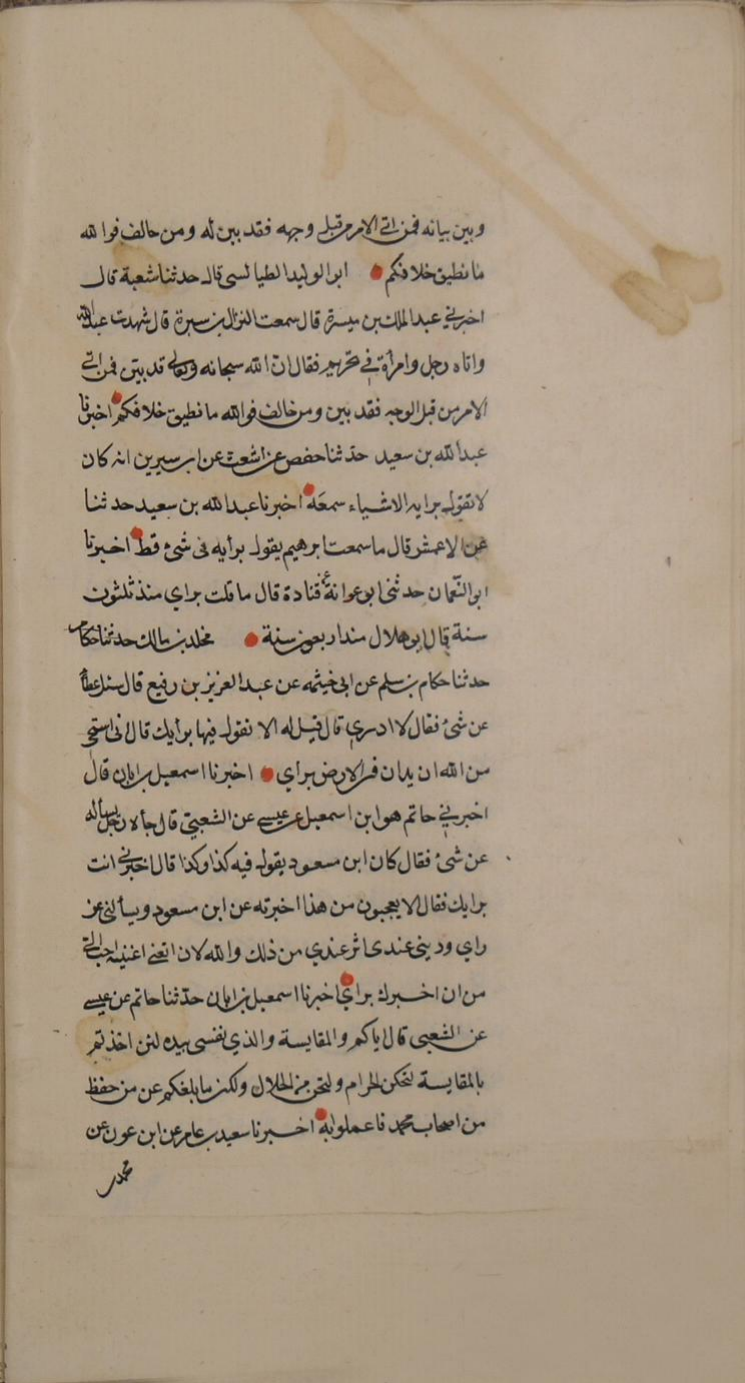 وبين بيانه فمن اتى الامر من قبل وجهه فقد بين له ومن خالف فوا لله
ما نطيق خلافكم ابو الوليد الطيالسى قال حدثنا شعبة قال
اخبرني عبد الملك بن ميسرة قال سمعت النزال بن سبرة قال شهدت عبد الله
واتاه رجل وامرأة في تحريم فقال ان الله سبحانه وتعالى قد بين فمن اتى
الامر من قبل الوجه فقد بين ومن خالف فوالله ما نطيق خلافكم اخبرنا
عبد الله بن سعيد حدثنا حفص عن اشعث عن ابن سيرين انه كان
لا يقول برايه الا شياء سمعه اخبرنا عبد الله بن سعيد حدثنا
عن الاعمش قال ما سمعت ابرهيم يقول برأيه فى شئ قط اخبرنا
ابو النعمان حدثنى ابو عوانة عن قتادة قال ما قلت براي منذ ثلثون
سنة قال ابو هلال منذ اربعون سنة مخلد بن مالك حدثنا حكام
حدثنا حكام بن سلم عن ابى خيثمه عن عبد العزيز بن رفيع قال سئل عطأ
عن شئ فقال لا ادري قال قيل له الا تقول فيها برايك قال انى استحي
من الله ان يدان فى الارض براي اخبرنا اسمعيل بن ابان قال
اخبرني حاتم هو ابن اسمعيل عن عيسى عن الشعبي قال جأه رجل يسأله
عن شئ فقال كان ابن مسعود يقول فيه كذا وكذا قال اخبرني انت
برايك فقال الا يعجبون من هذا اخبرته عن ابن مسعود ويسألنى عن
راي ودينى عندى اثر عندي من ذلك والله لان اتغنى اغنية احب الي
من ان اخبرك براي اخبرنا اسمعيل بن ابان حدثنا حاتم عن عيسى
عن الشعبى قال ياكم والمقايسة والذي نفسى بيده لئن اخذتم
بالمقايسة لتحلن الحرام ولتحرمن الحلال ولكن ما بلغكم عن من حفظ
من اصحاب محمد فاعملوا به اخبرنا سعيد بن عامر عن ابن عون عن
محمد